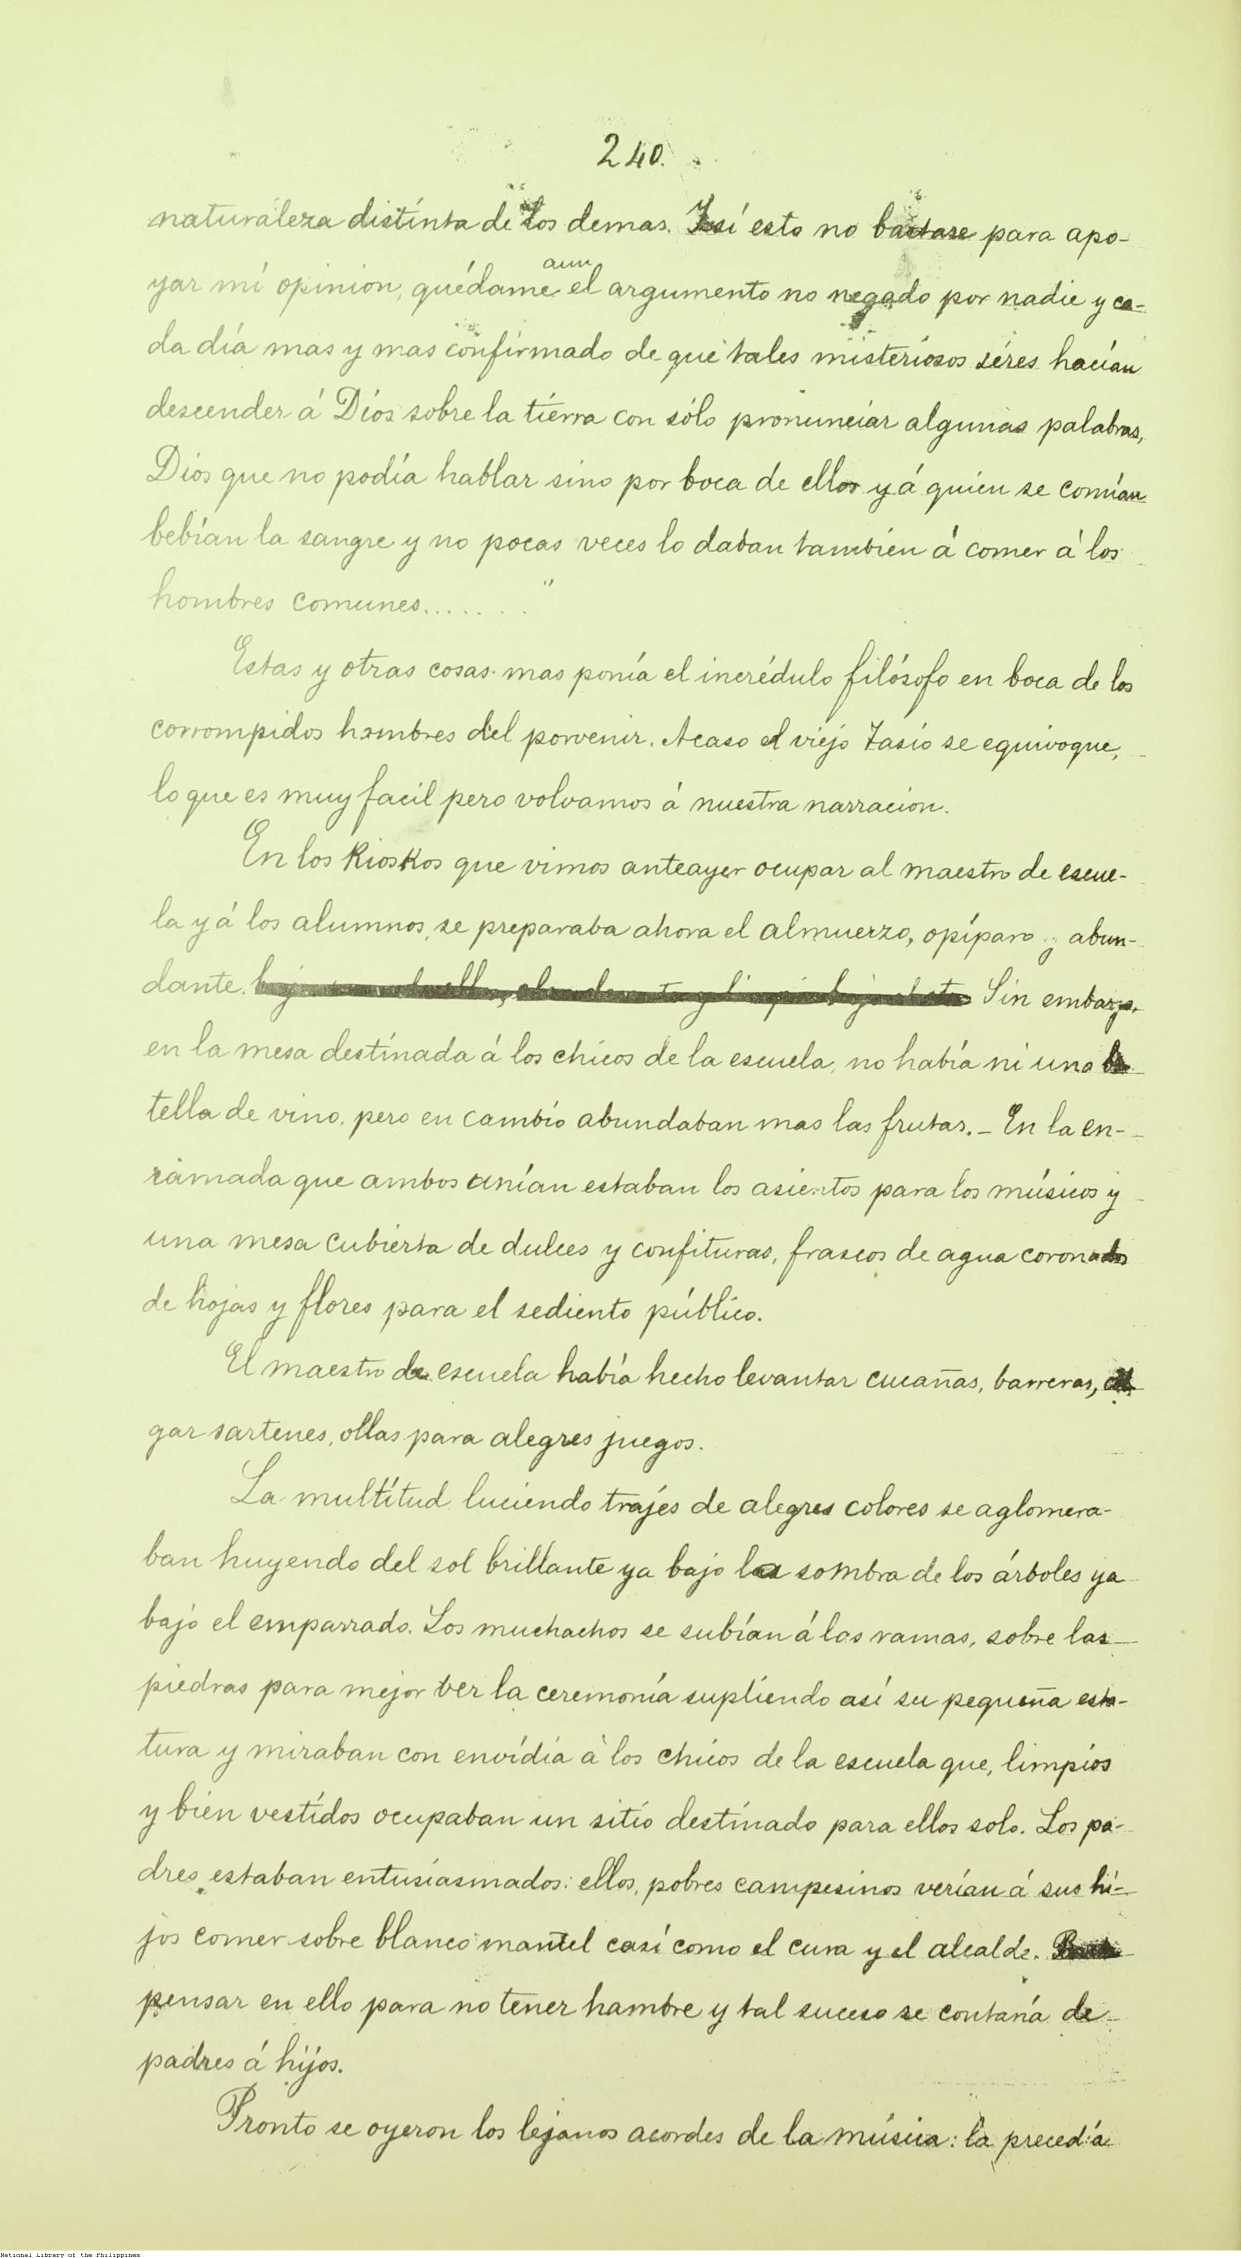 240.
naturaleza distínta de los demas. Y si esto no bastase para apo-
aun
yar mi opinion, quédame el argumento no negado por nadie y ca-
da día mas y mas confirmado de que tales misteriosos séres hacían
descender á Díos sobre la tierra con sólo pronunciar algunas palabras,
Dios que no podía hablar sino por boca de ellos y á quien se comían
bebían la sangre y no pocas veces lo daban tambien á comer á los
hombres comunes.......”
Estas y otras cosas mas ponía el incrédulo filósofo en boca de los
corrompidos hombres del porvenir. Acaso el viejo Tasio se equivoque,
lo que es muy facil pero volvamos á nuestra narracion.
En los Kioskos que vimos anteayer ocupar al maestro de escue-
la y á los alumnos, se preparaba ahora el almuerzo, opíparo y abun-
dante. Sin embargo,
en la mesa destinada á los chicos de la escuela, no había ni una bo-
tella de vino, pero en cambio abundaban mas las frutas. – En la en-
ramada que ambos unían estaban los asientos para los músicos y
una mesa cubierta de dulces y confituras, frascos de agua coronados
de hojas y flores para el sediento público.
El maestro de escuela había hecho levantar cucañas, barreras, col-
gar sartenes, ollas para alegres juegos.
La multitud luciendo trajes de alegres colores se aglomera-
ban huyendo del sol brillante ya bajo la sombra de los árboles ya
bajo el emparrado. Los muchachos se subían á las ramas, sobre las
piedras para mejor ver la ceremonía supliendo así su pequeña esta-
tura y miraban con envidia á los chicos de la escuela que, limpios
y bien vestidos ocupaban un sitio destinado para ellos solo. Los pa-
dres estaban entusiasmados: ellos, pobres campesinos verían á sus hi-
jos comer sobre blanco mantel casi como el cura y el alcalde. Basta
pensar en ello para no tener hambre y tal suceso se contaría de
padres á hijos.
Pronto se oyeron los lejanos acordes de la música: la precedía
National Library of the Philippines